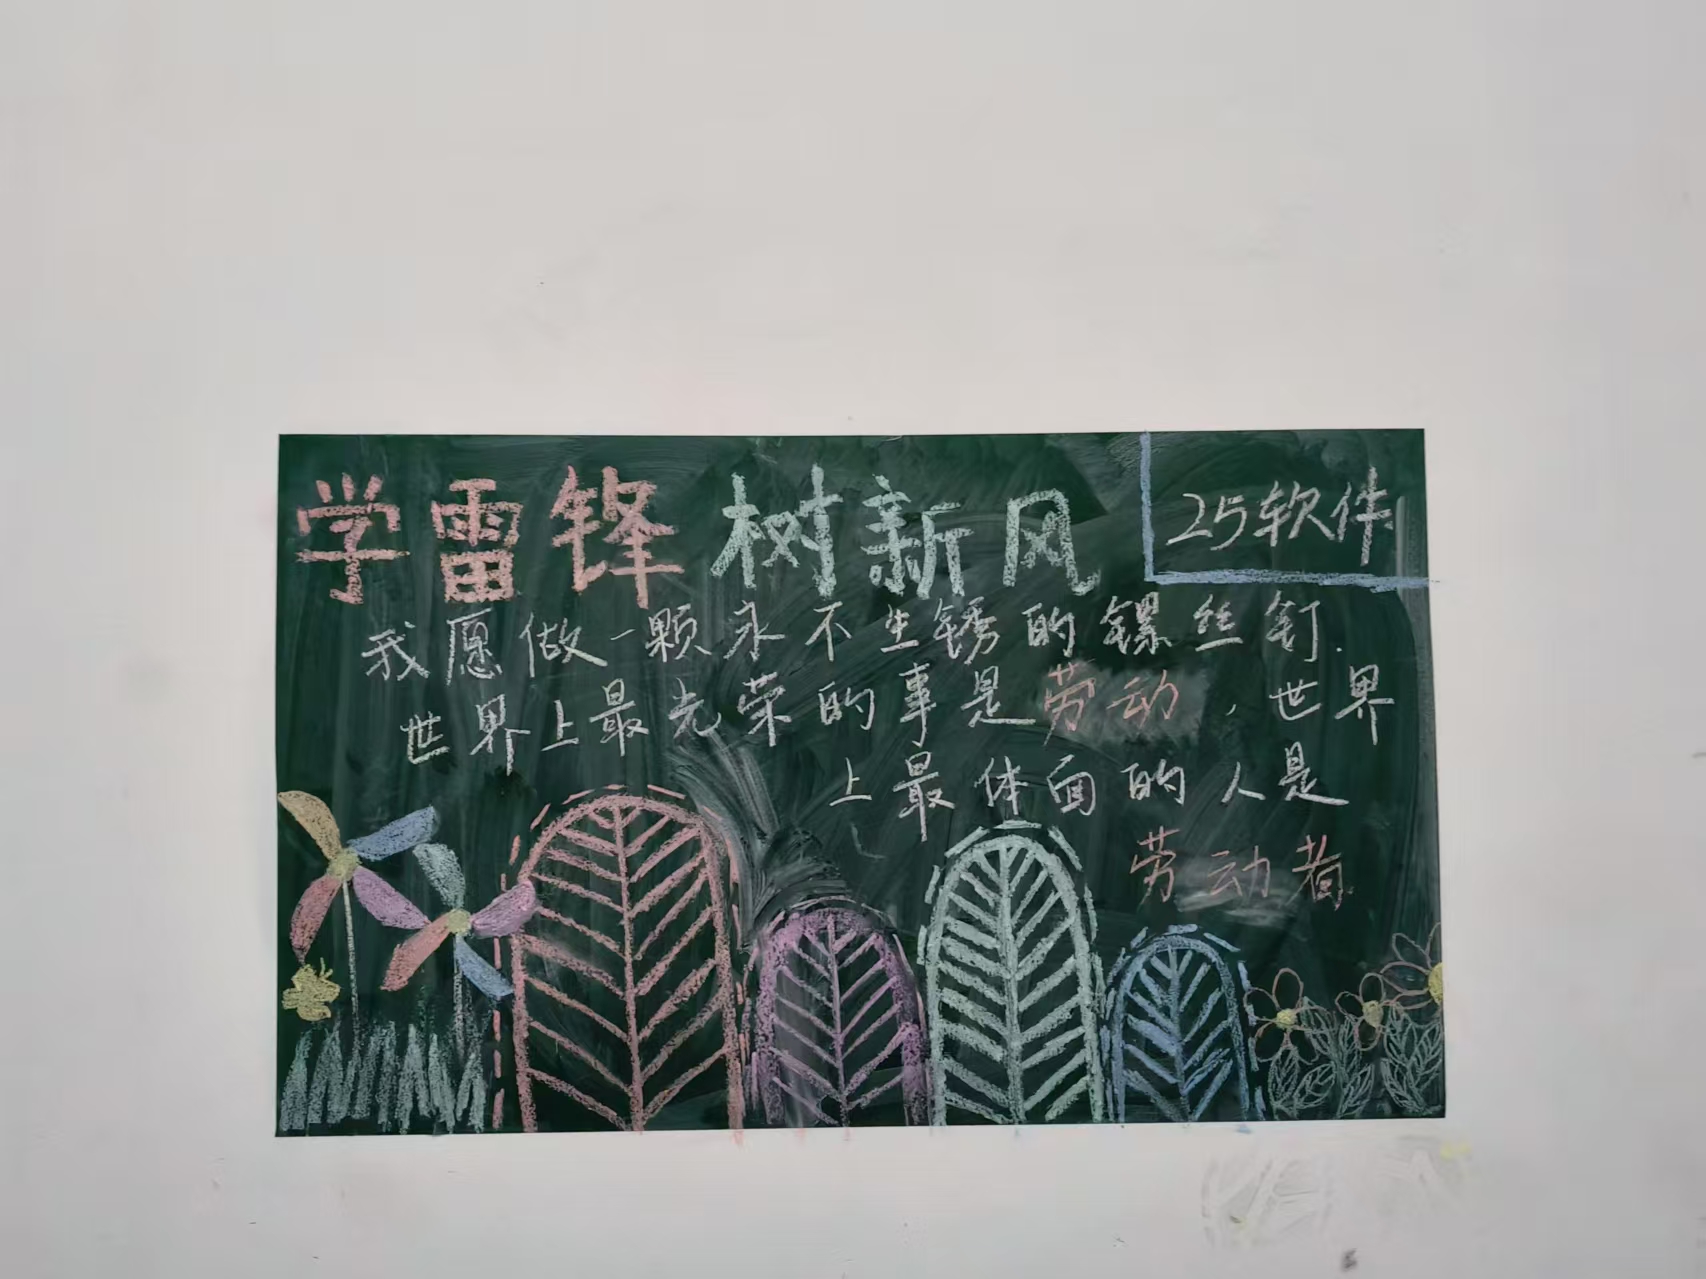 学雷锋 树新风
25软件
我愿做一颗永不生锈的镙丝钉.
世界上最光荣的事是劳动，世界
上最体面的人是
劳动者